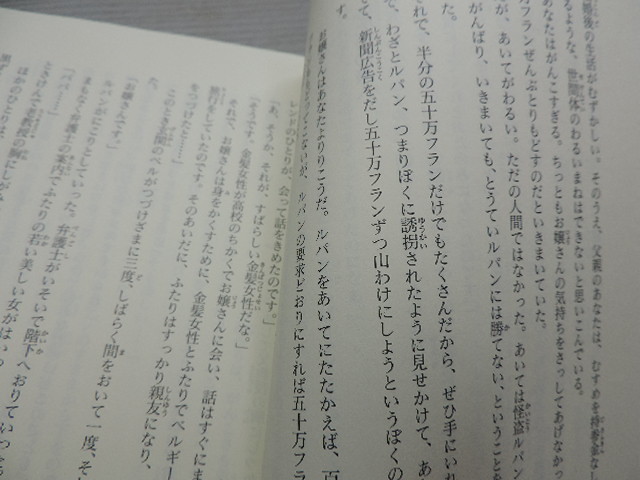 婚後の生活がむずかしい。そのうえ、父親のあなたは、むすめを持参金なし
るような、世間体のわるいまねはできないと思いこんでいる。
あなたはがんこすぎる。ちっともお嬢さんの気持ちをさっしてあげなかっ
万フランぜんぶとりもどすのだといきまいていた。
が、あいてがわるい。ただの人間ではなかった。あいては怪盗ルパン
がんばり、いきまいても、とうていルパンには勝てない、ということを
た。
れで、半分の五十万フランだけでもたくさんだから、ぜひ手にいれ
て、わざとルパン、つまりぼくに誘拐されたように見せかけて、あ
新聞広告をだし五十万フランずつ山わけにしようというぼくの
す。
お嬢さんはあなたよりりこうだ。ルパンをあいてにたたかえば、百
ないが、ルパンの要求どおりにすれば五十万フラ
レンドのひとりが、会って話をきめたのです。」
「あ、そうか、それが、すばらしい金髪女性だな。」
「そうです。金髪女性が高校のちかくでお嬢さんに会い、話はすぐにま
それで、お嬢さんは身をかくすために、金髪女性とふたりでベルギー
旅行をしていたのです。そのあいだに、ふたりはすっかり親友になり、
このとき玄関のベルがつづけざまに三度、しばらく間をおいて一度、そ
た。
「お嬢さんです。」
ルパンがにこりとしていった。弁護士がいそいで階下へおりていった
まもなく弁護士の案内でふたりの若い美しい女がはいっ
「パパ……」
とさけんで教授の胸にしがみ
ほかのひとりは、